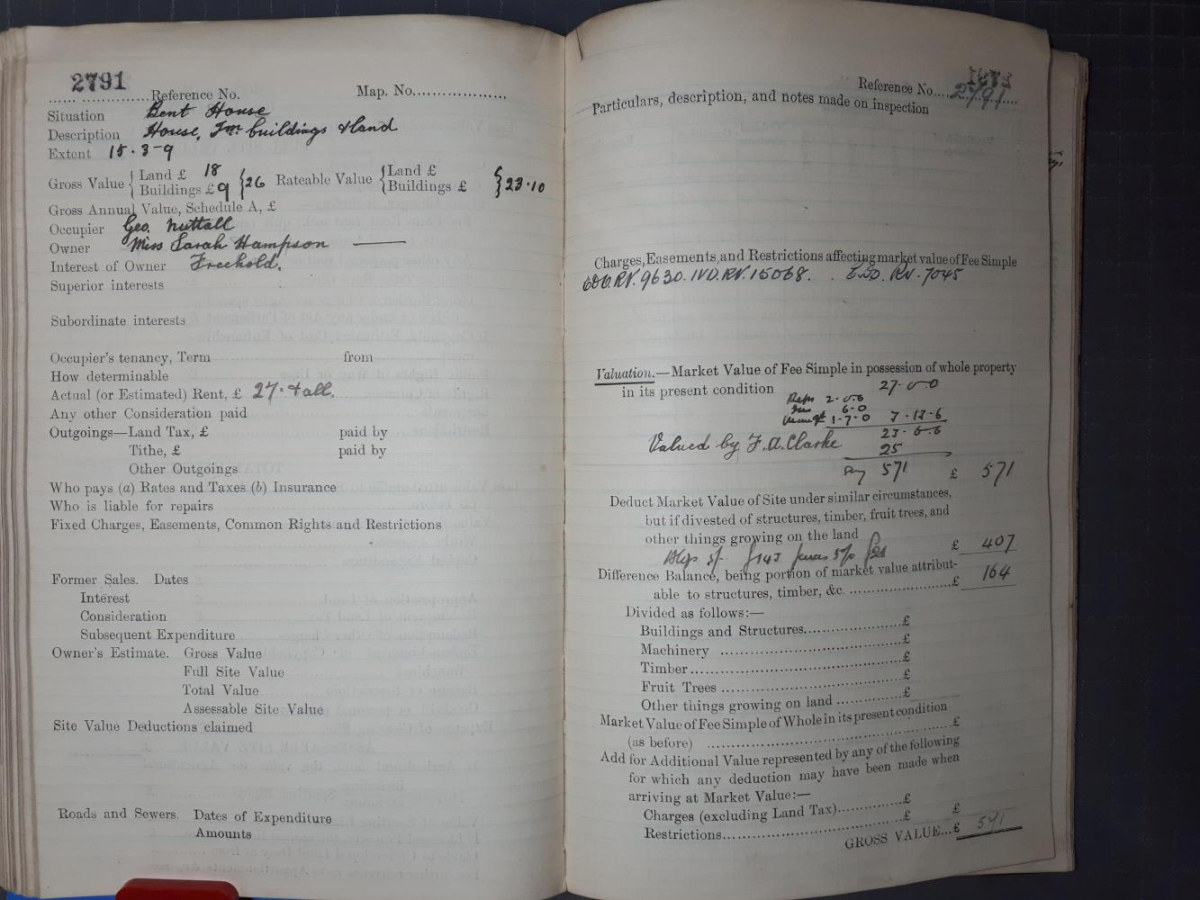 2791
Reference No. Map. No.
Situation Bent House
Description House, Fm buildings & land
Extent 15-3-9
Gross Value { Land £ 18 Buildings £ 9 } 26 Rateable Value { Land £ Buildings £ } 23.10
Gross Annual Value, Schedule A, £
Occupier Geo. Nuttall
Owner Miss Sarah Hampson
Interest of Owner Freehold.
Superior interests
Subordinate interests
Occupier's tenancy, Term from
How determinable
Actual (or Estimated) Rent, £ 27. & all.
Any other Consideration paid
Outgoings—Land Tax, £ paid by
Tithe, £ paid by
Other Outgoings
Who pays (a) Rates and Taxes (b) Insurance
Who is liable for repairs
Fixed Charges, Easements, Common Rights and Restrictions
Former Sales. Dates
Interest
Consideration
Subsequent Expenditure
Owner's Estimate. Gross Value
Full Site Value
Total Value
Assessable Site Value
Site Value Deductions claimed
Roads and Sewers. Dates of Expenditure
Amounts
Reference No. 2791
Particulars, description, and notes made on inspection
Charges, Easements, and Restrictions affecting market value of Fee Simple
RV. 9630. IVD. RV. 15068. RV. 7045
Valuation.—Market Value of Fee Simple in possession of whole property
in its present condition 27-0-0
2-0-0
6-0
1-7-0
Valued by F.A. Clarke
25
Say 571 £ 571
Deduct Market Value of Site under similar circumstances,
but if divested of structures, timber, fruit trees, and
other things growing on the land
£ 407
Difference Balance, being portion of market value attribut-
able to structures, timber, &c. £ 164
Divided as follows:—
Buildings and Structures £
Machinery £
Timber £
Fruit Trees £
Other things growing on land £
Market Value of Fee Simple of Whole in its present condition
(as before) £
Add for Additional Value represented by any of the following
for which any deduction may have been made when
arriving at Market Value:—
Charges (excluding Land Tax) £
Restrictions £ £
GROSS VALUE...£ 571